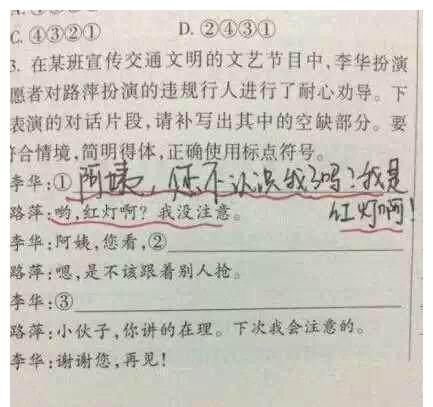 C. ④③②① D. ②④③①
3. 在某班宣传交通文明的文艺节目中,李华扮演
愿者对路萍扮演的违规行人进行了耐心劝导。下
表演的对话片段,请补写出其中的空缺部分。要
符合情境,简明得体,正确使用标点符号。
李华:①阿姨,您不认识我了吗?我是
红灯啊!
路萍:哟,红灯啊?我没注意。
李华:阿姨,您看,②
路萍:嗯,是不该跟着别人抢。
李华:③
路萍:小伙子,你讲的在理。下次我会注意的。
李华:谢谢您,再见!